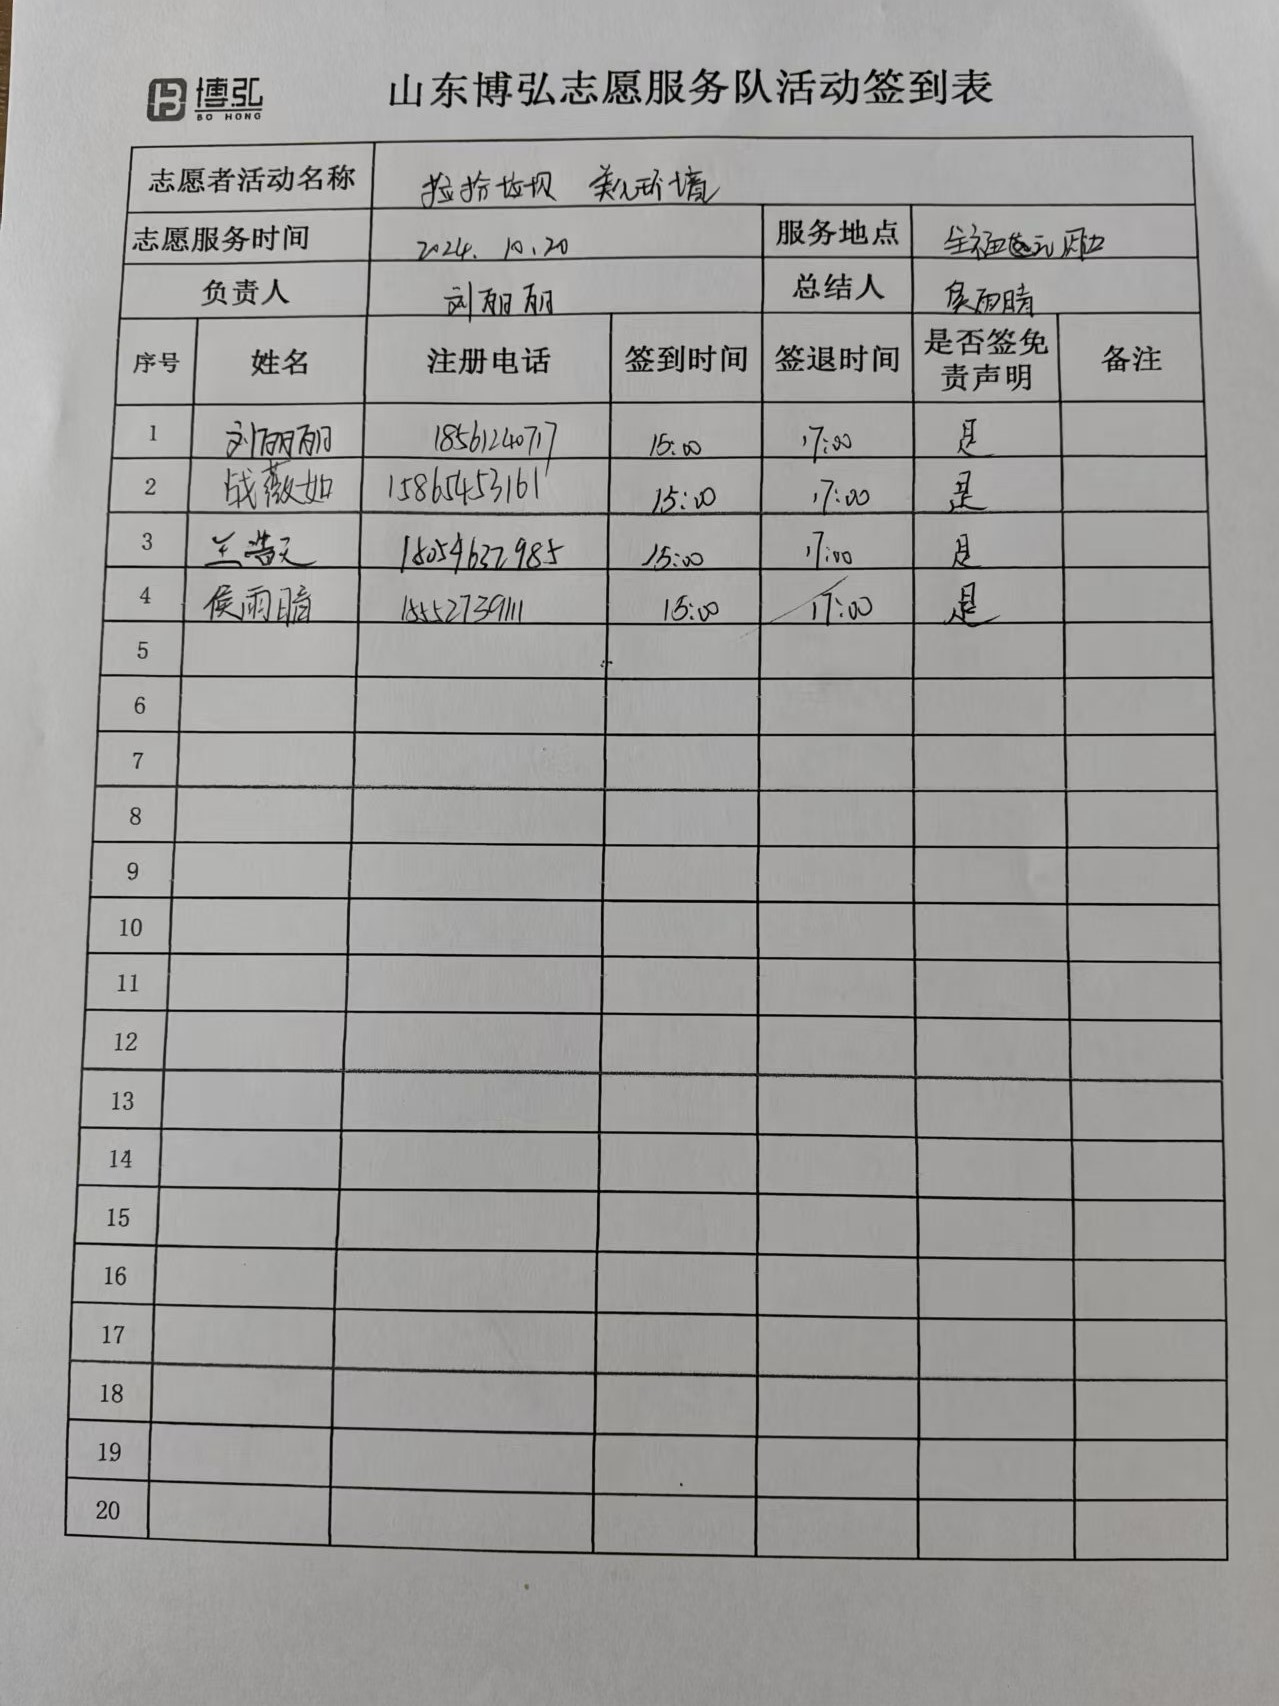 博弘
BO HONG
山东博弘志愿服务队活动签到表
志愿者活动名称 捡拾垃圾 美化环境
志愿服务时间 2024.10.20 服务地点
负责人 刘丽丽 总结人 侯雨晴
序号 姓名 注册电话 签到时间 签退时间 是否签免责声明 备注
1 刘丽丽 18561240717 15:00 17:00 是
2 战薇如 15865453161 15:00 17:00 是
3 兰浩天 18054632985 15:00 17:00 是
4 侯雨晴 18552739111 15:00 17:00 是
5
6
7
8
9
10
11
12
13
14
15
16
17
18
19
20